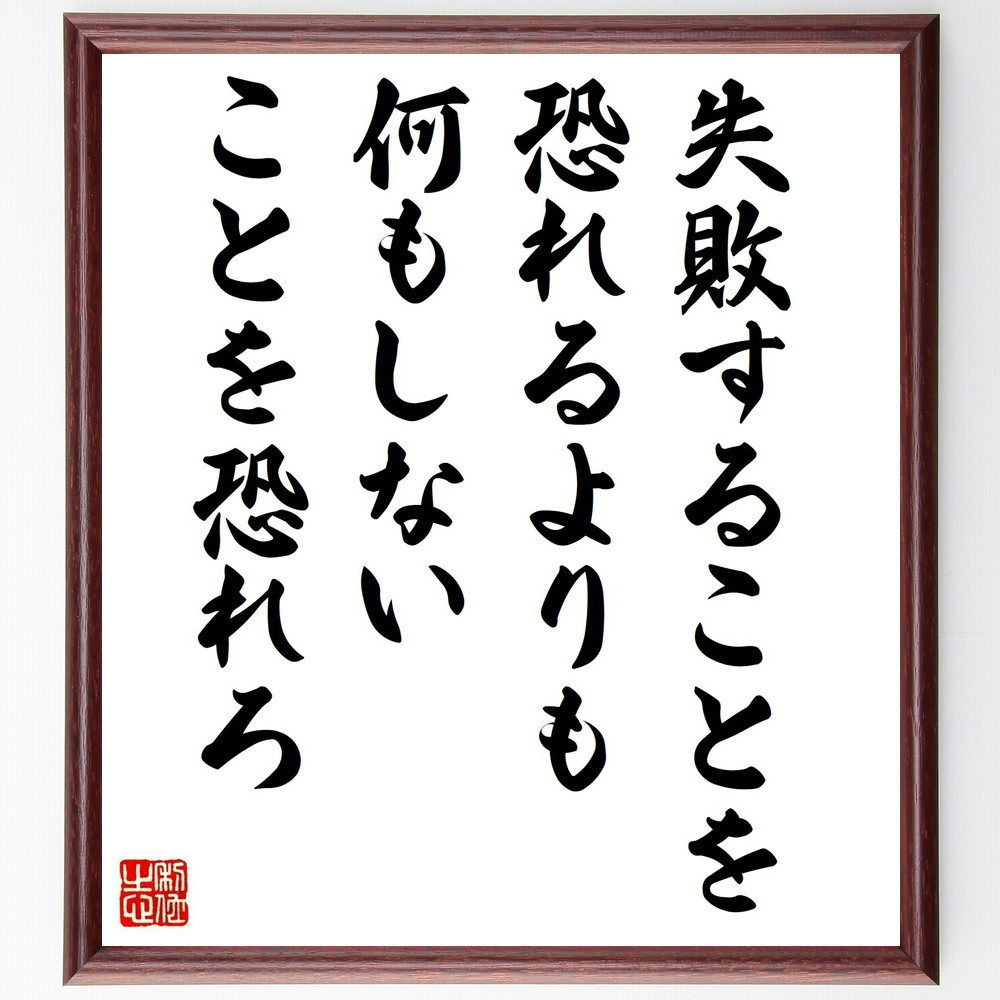 失敗することを
恐れるよりも
何もしない
ことを恐れろ